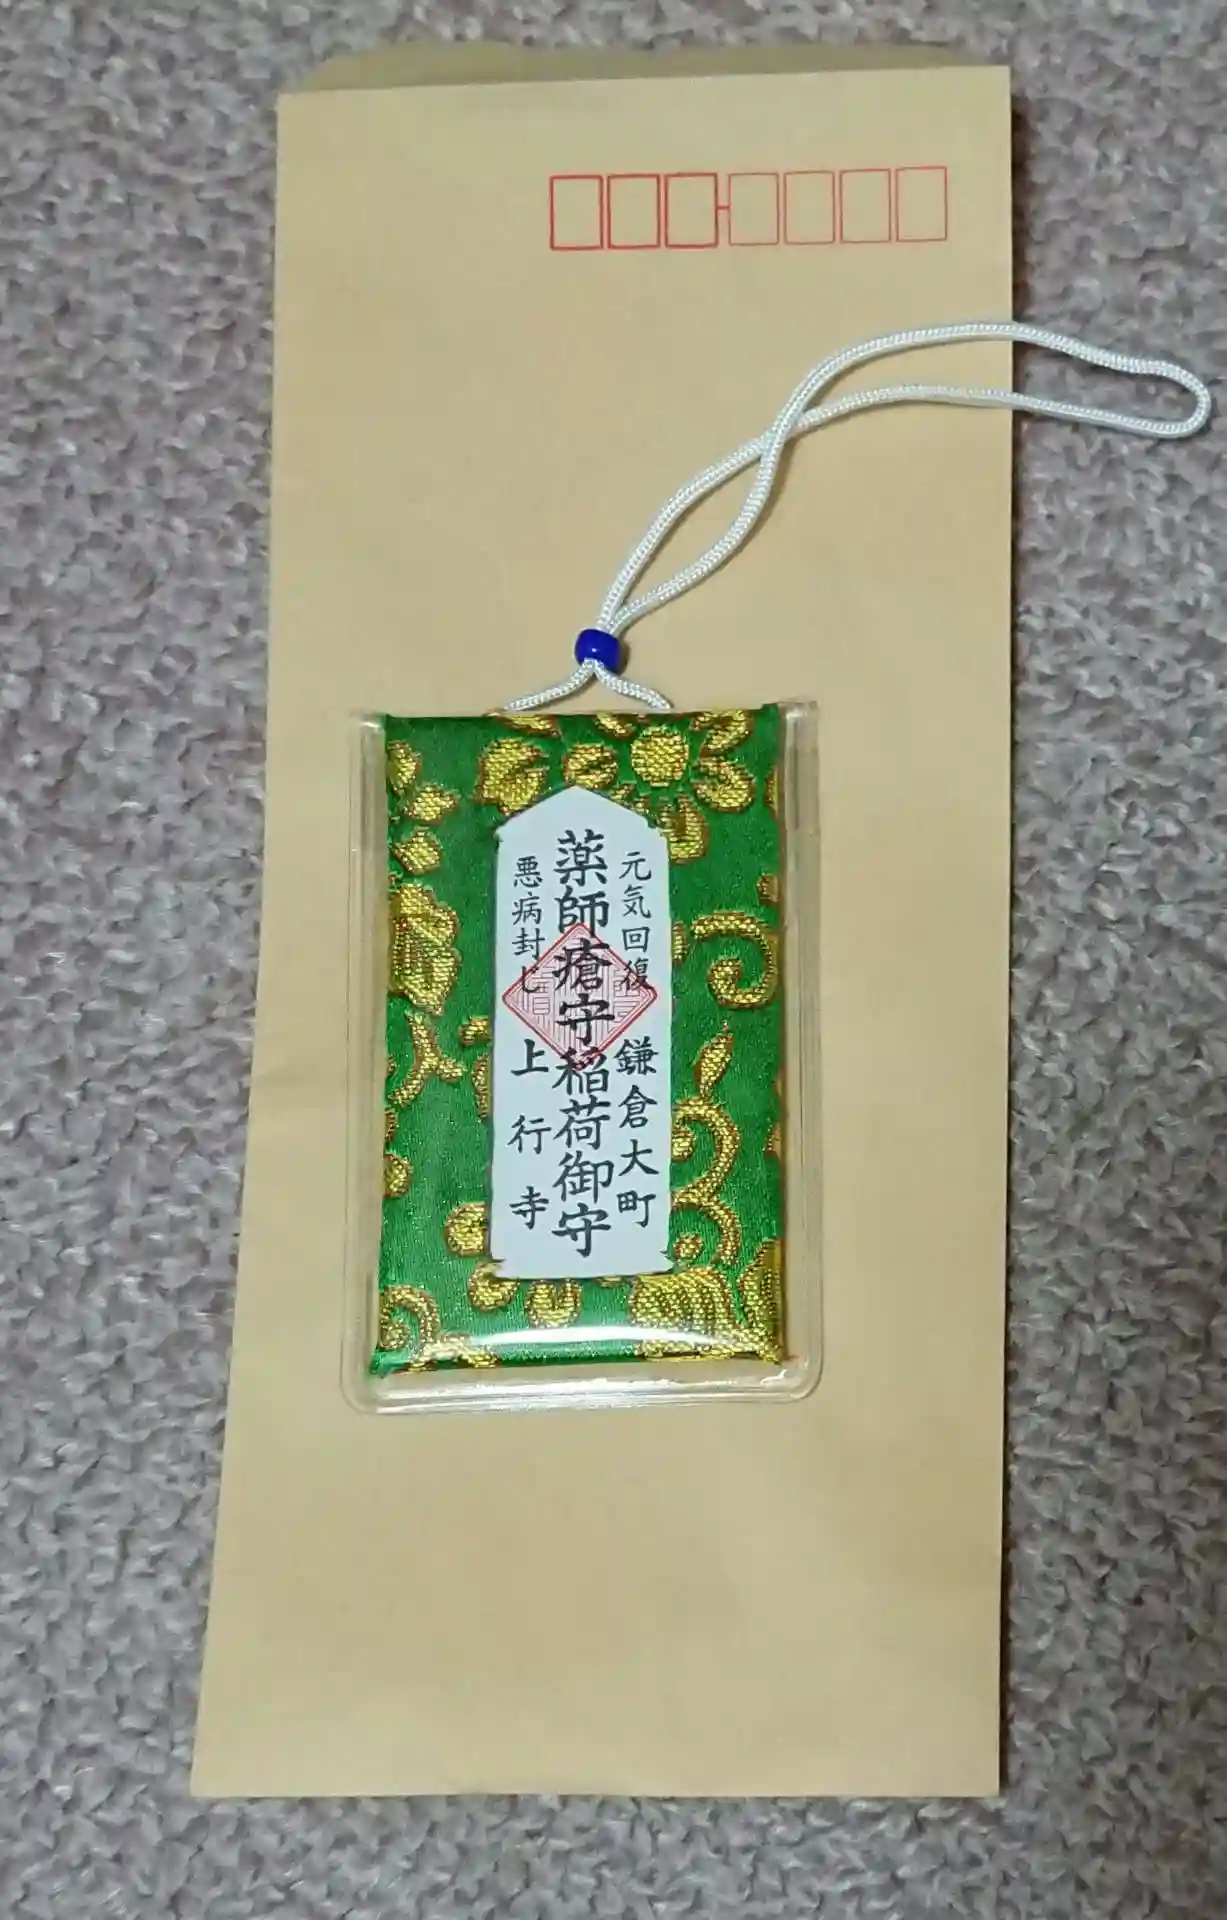 元気回復 鎌倉大町
薬師瘡守稲荷御守
悪病封じ 上行寺